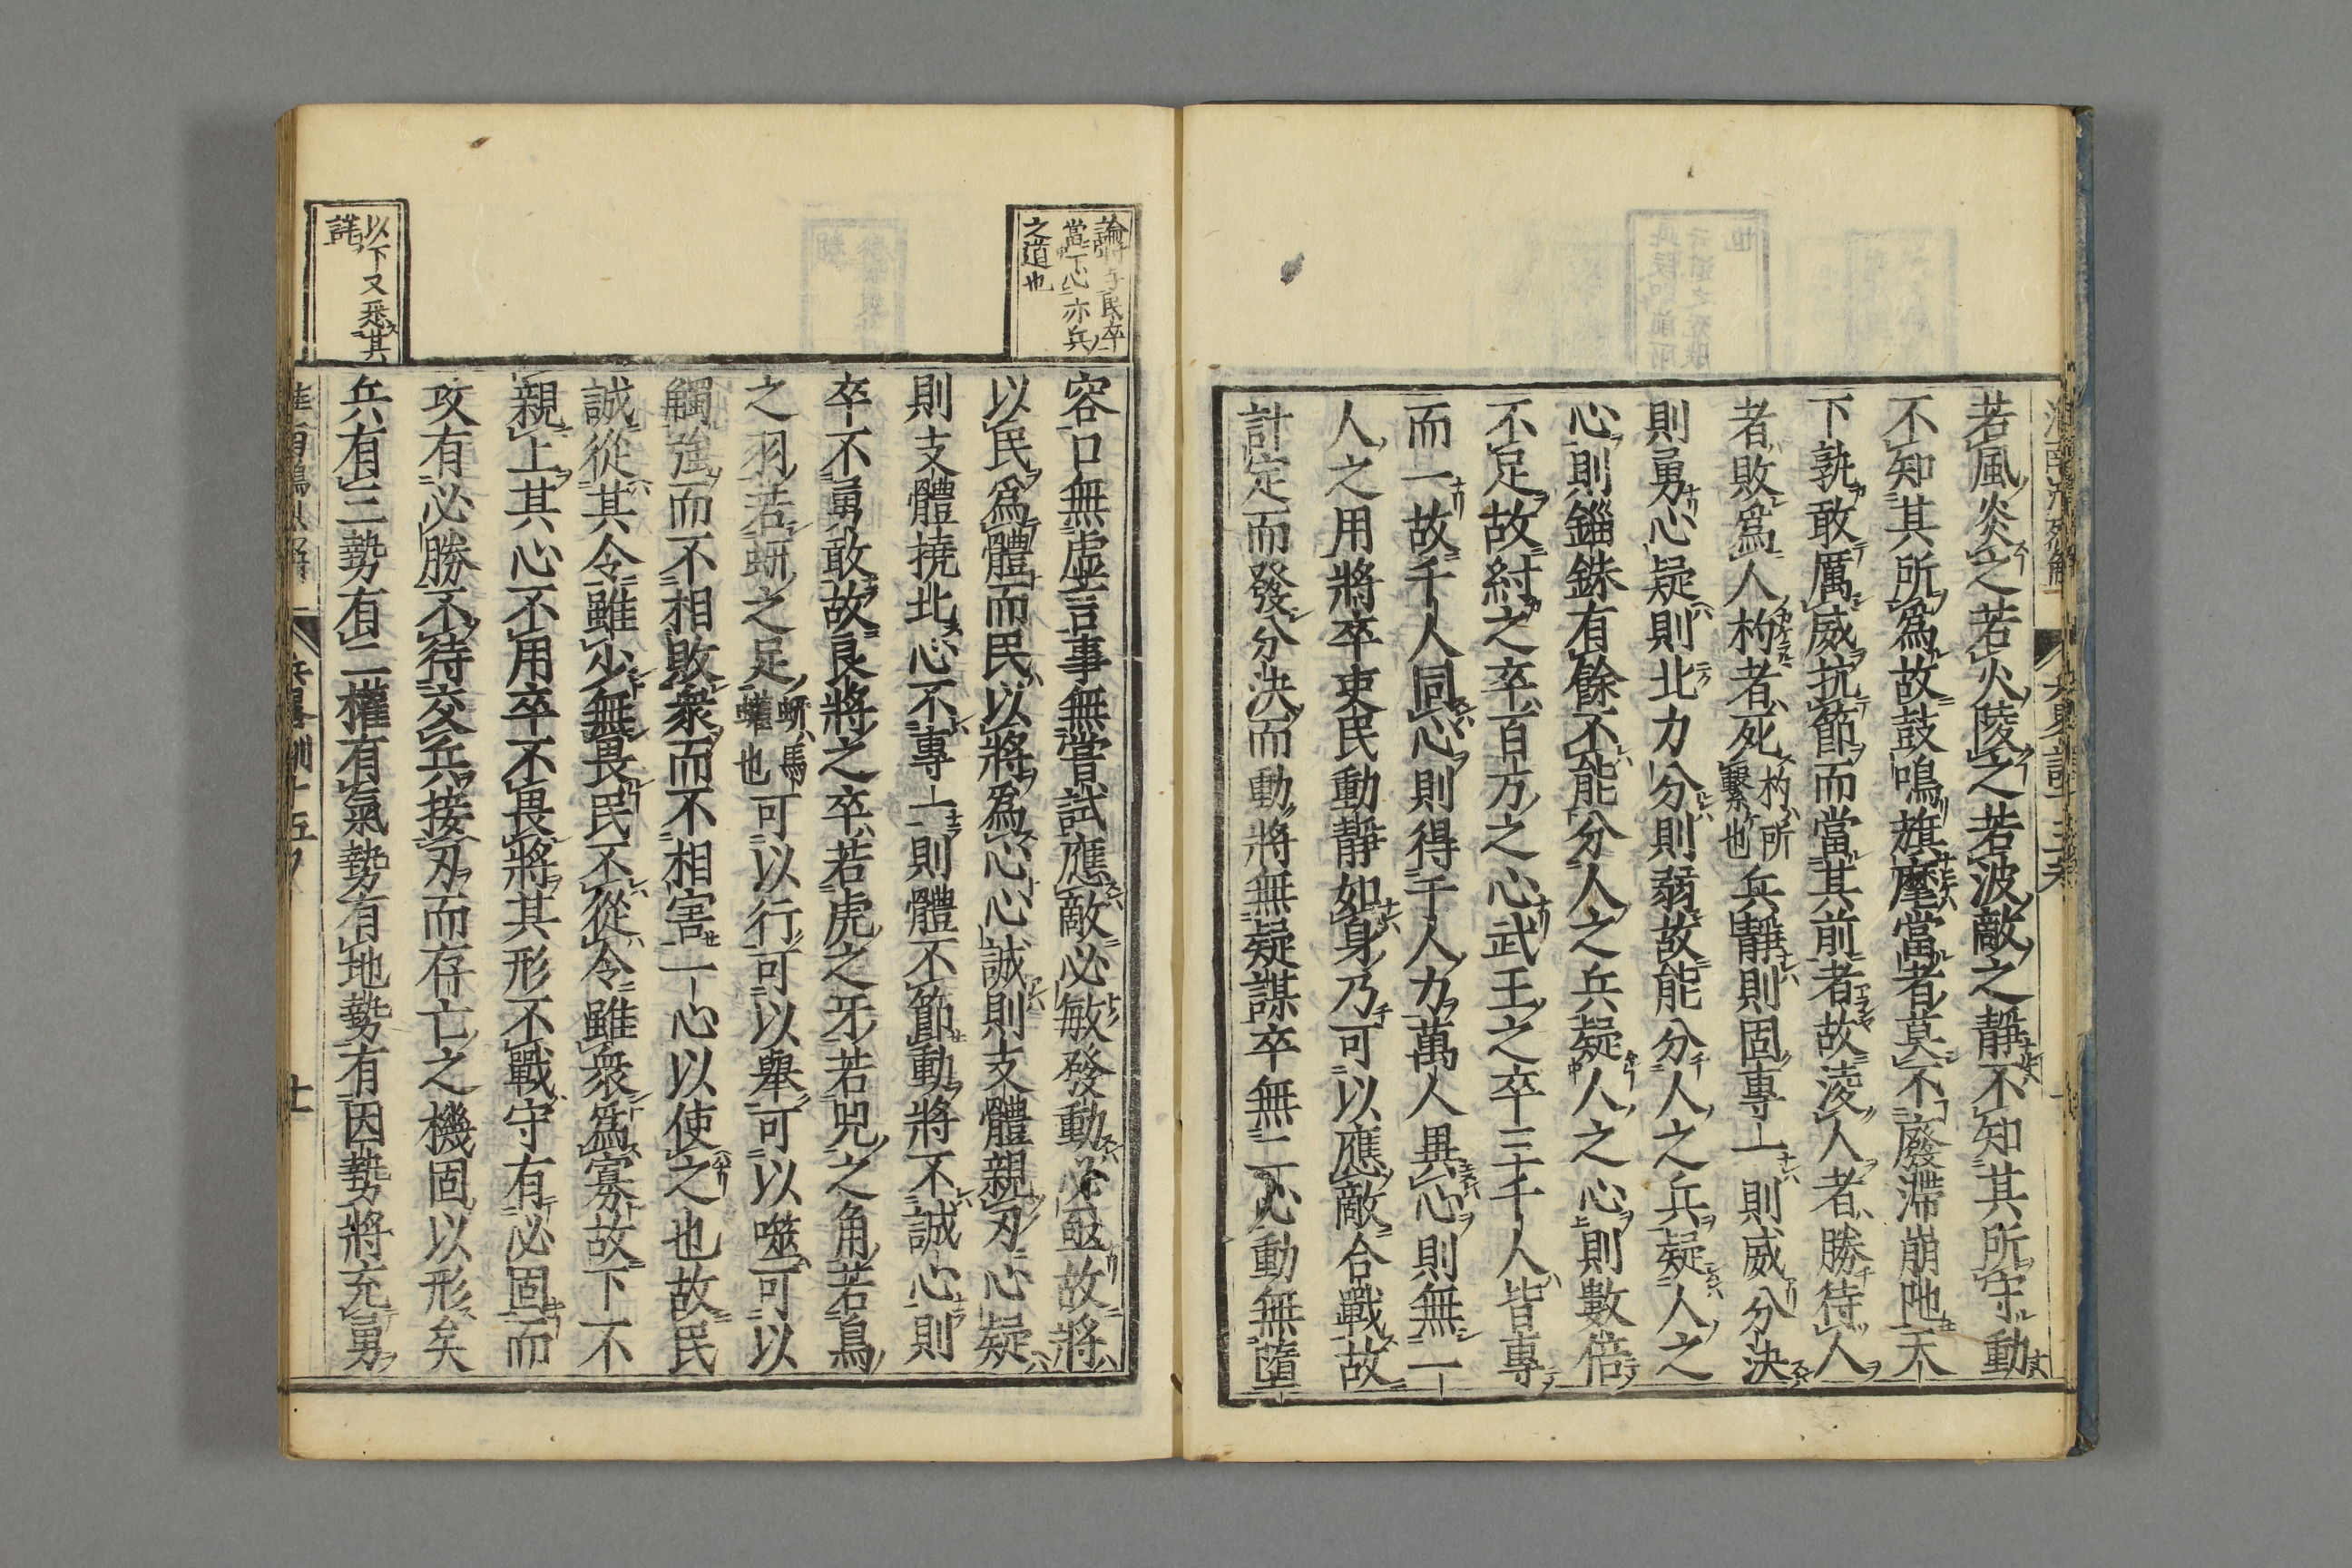 若風炎之若火陵之若波敵之靜不知其所守動
不知其所爲故鼓鳴旗麾當者莫不廢滯崩阤天
下孰敢厲威抗節而當其前者故淩人者勝待人
者敗爲人杓者死杓所繫也兵靜則固專一則威分決
則勇心疑則北力分則弱故能分人之兵疑人之
心則錙銖有餘不能分人之兵疑人之心則數倍
不足故紂之卒百万之心武王之卒三千人皆專
而一故千人同心則得千人力萬人異心則無一
人之用將卒吏民動靜如身乃可以應敵合戰故
計定而發分決而動將無疑謀卒無二心動無墮
論將與民卒
當下心亦兵
之道也
容口無虛言事無嘗試應敵必敏發動必亟故將
以民爲體而民以將爲心心誠則支體親刃心疑
則支體撓北心不專一則體不節動將不誠心則
卒不勇敢故良將之卒若虎之牙若兕之角若鳥
之羽若蚈之足蚈馬蠸也可以行可以舉可以噬可以
觸強而不相敗衆而不相害一心以使之也故民
誠從其令雖少無畏民不從令雖衆爲寡故下不
親上其心不用卒不畏將其形不戰守有必固而
攻有必勝不待交兵接刃而存亡之機固以形矣
兵有三勢有二權有氣勢有地勢有因勢將充勇
以下又悉其
説
兵畧訓十五